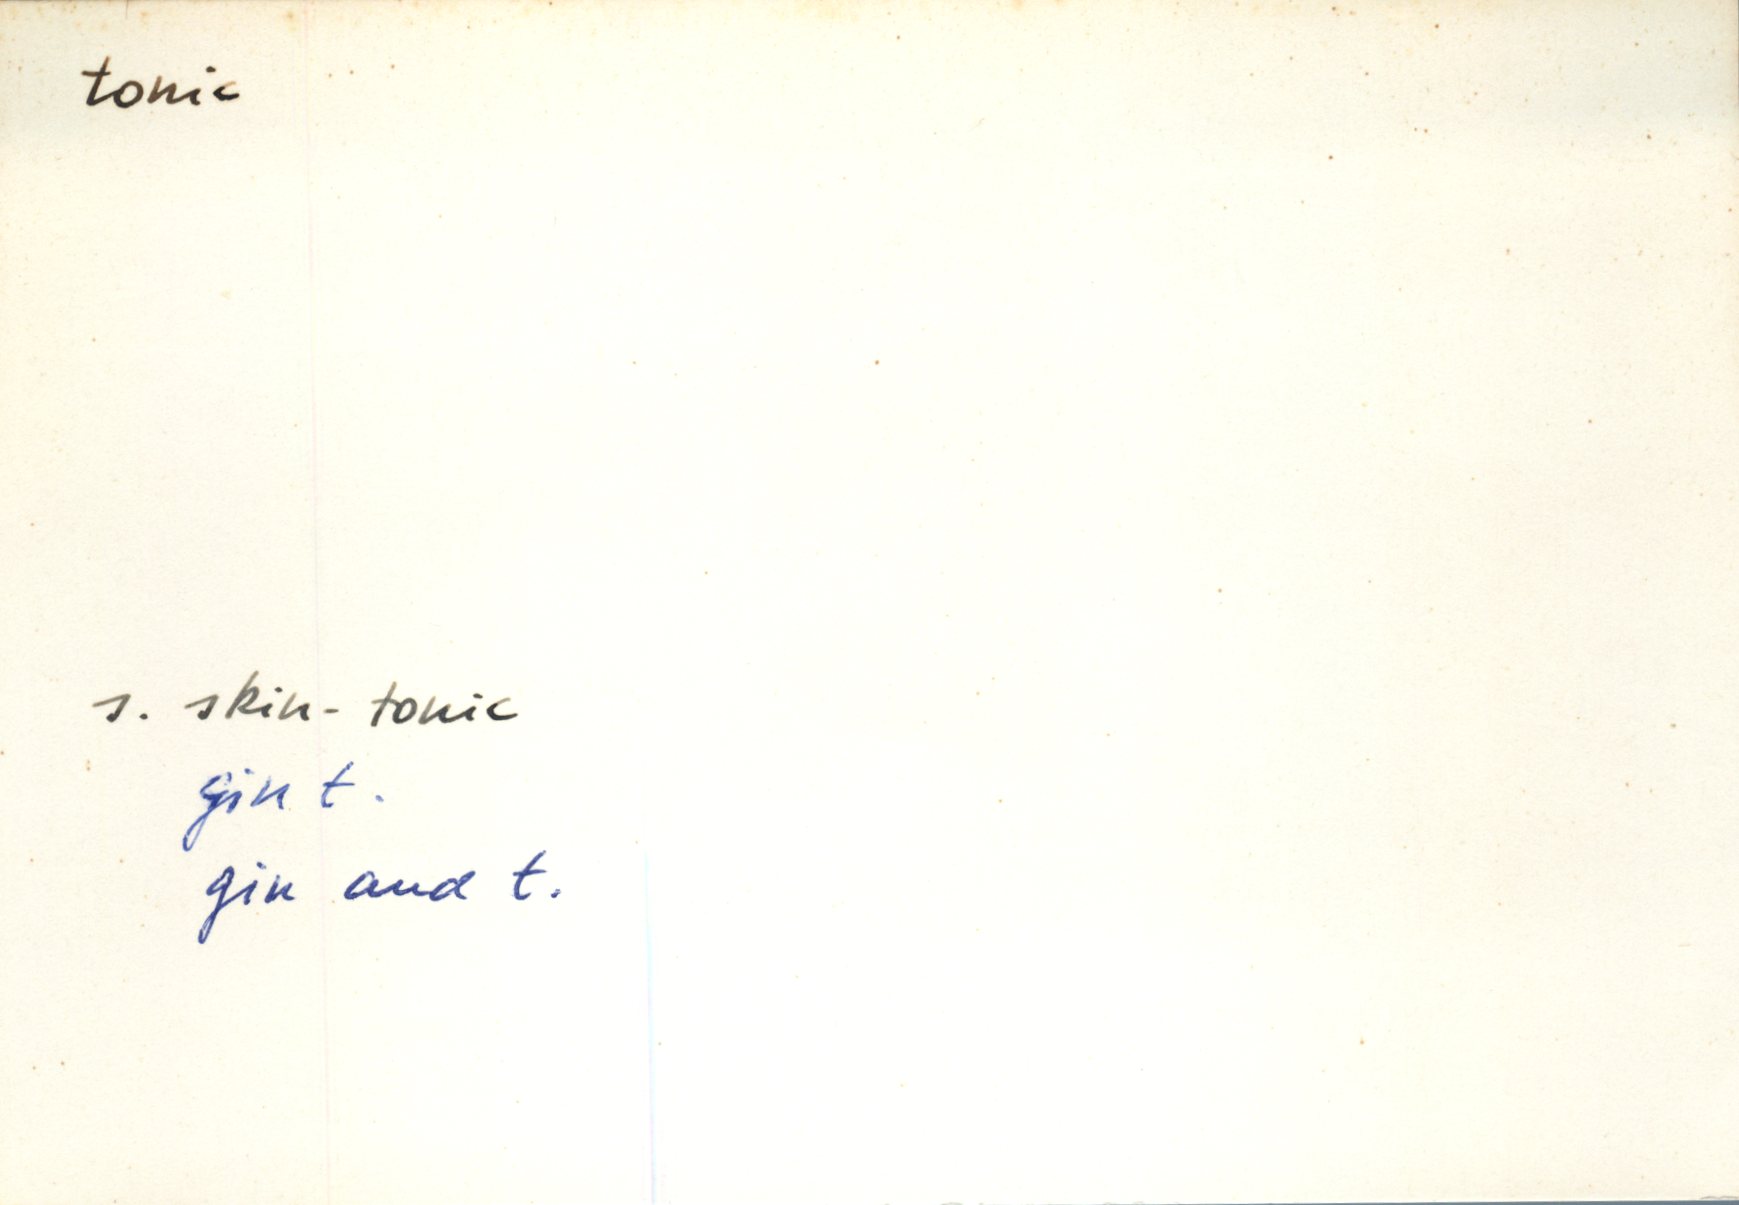 tonic
s. skin-tonic
gin t.
gin and t.